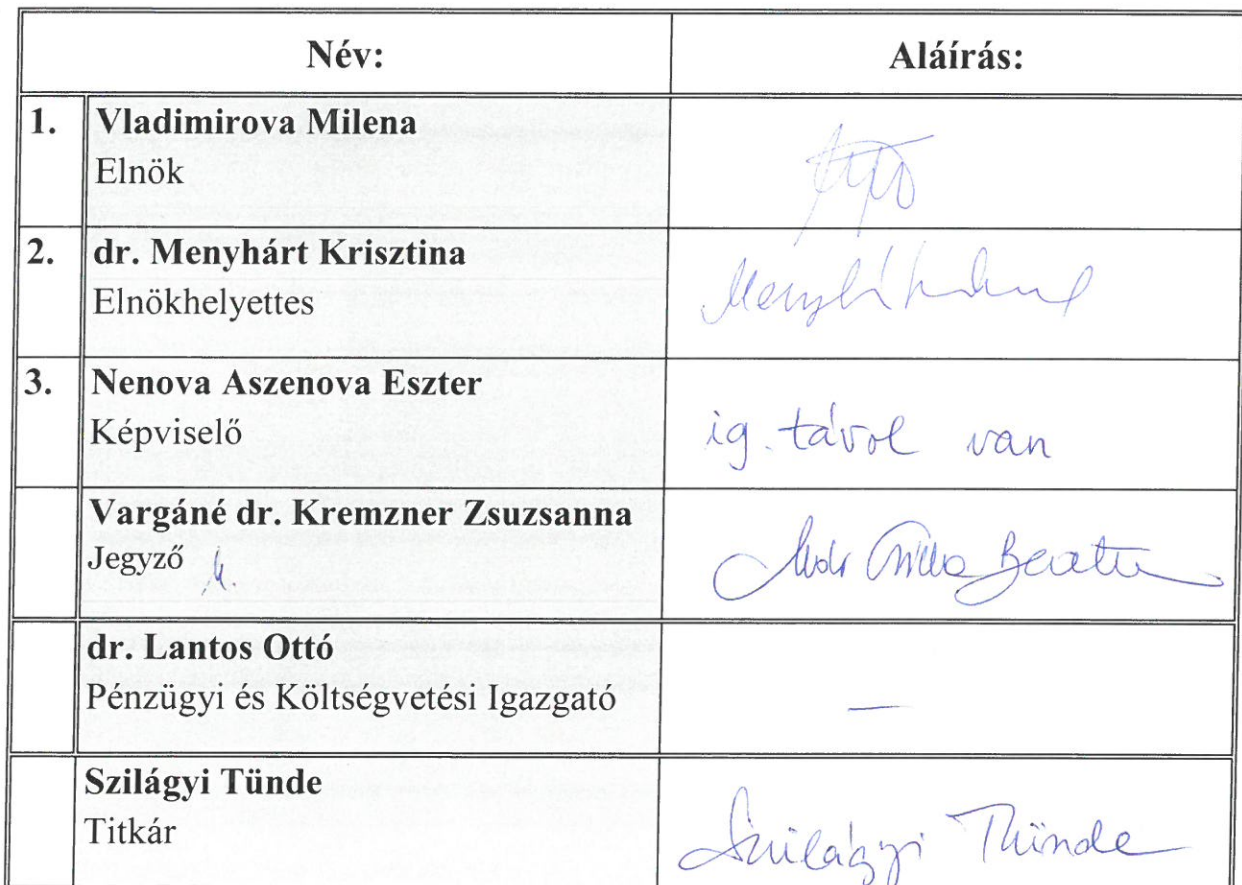 Név: Aláírás:
1. Vladimirova Milena
Elnök
2. dr. Menyhárt Krisztina
Elnökhelyettes
3. Nenova Aszenova Eszter
Képviselő
ig. távol van
Vargáné dr. Kremzner Zsuzsanna
Jegyző
dr. Lantos Ottó
Pénzügyi és Költségvetési Igazgató
—
Szilágyi Tünde
Titkár
Szilágyi Tünde